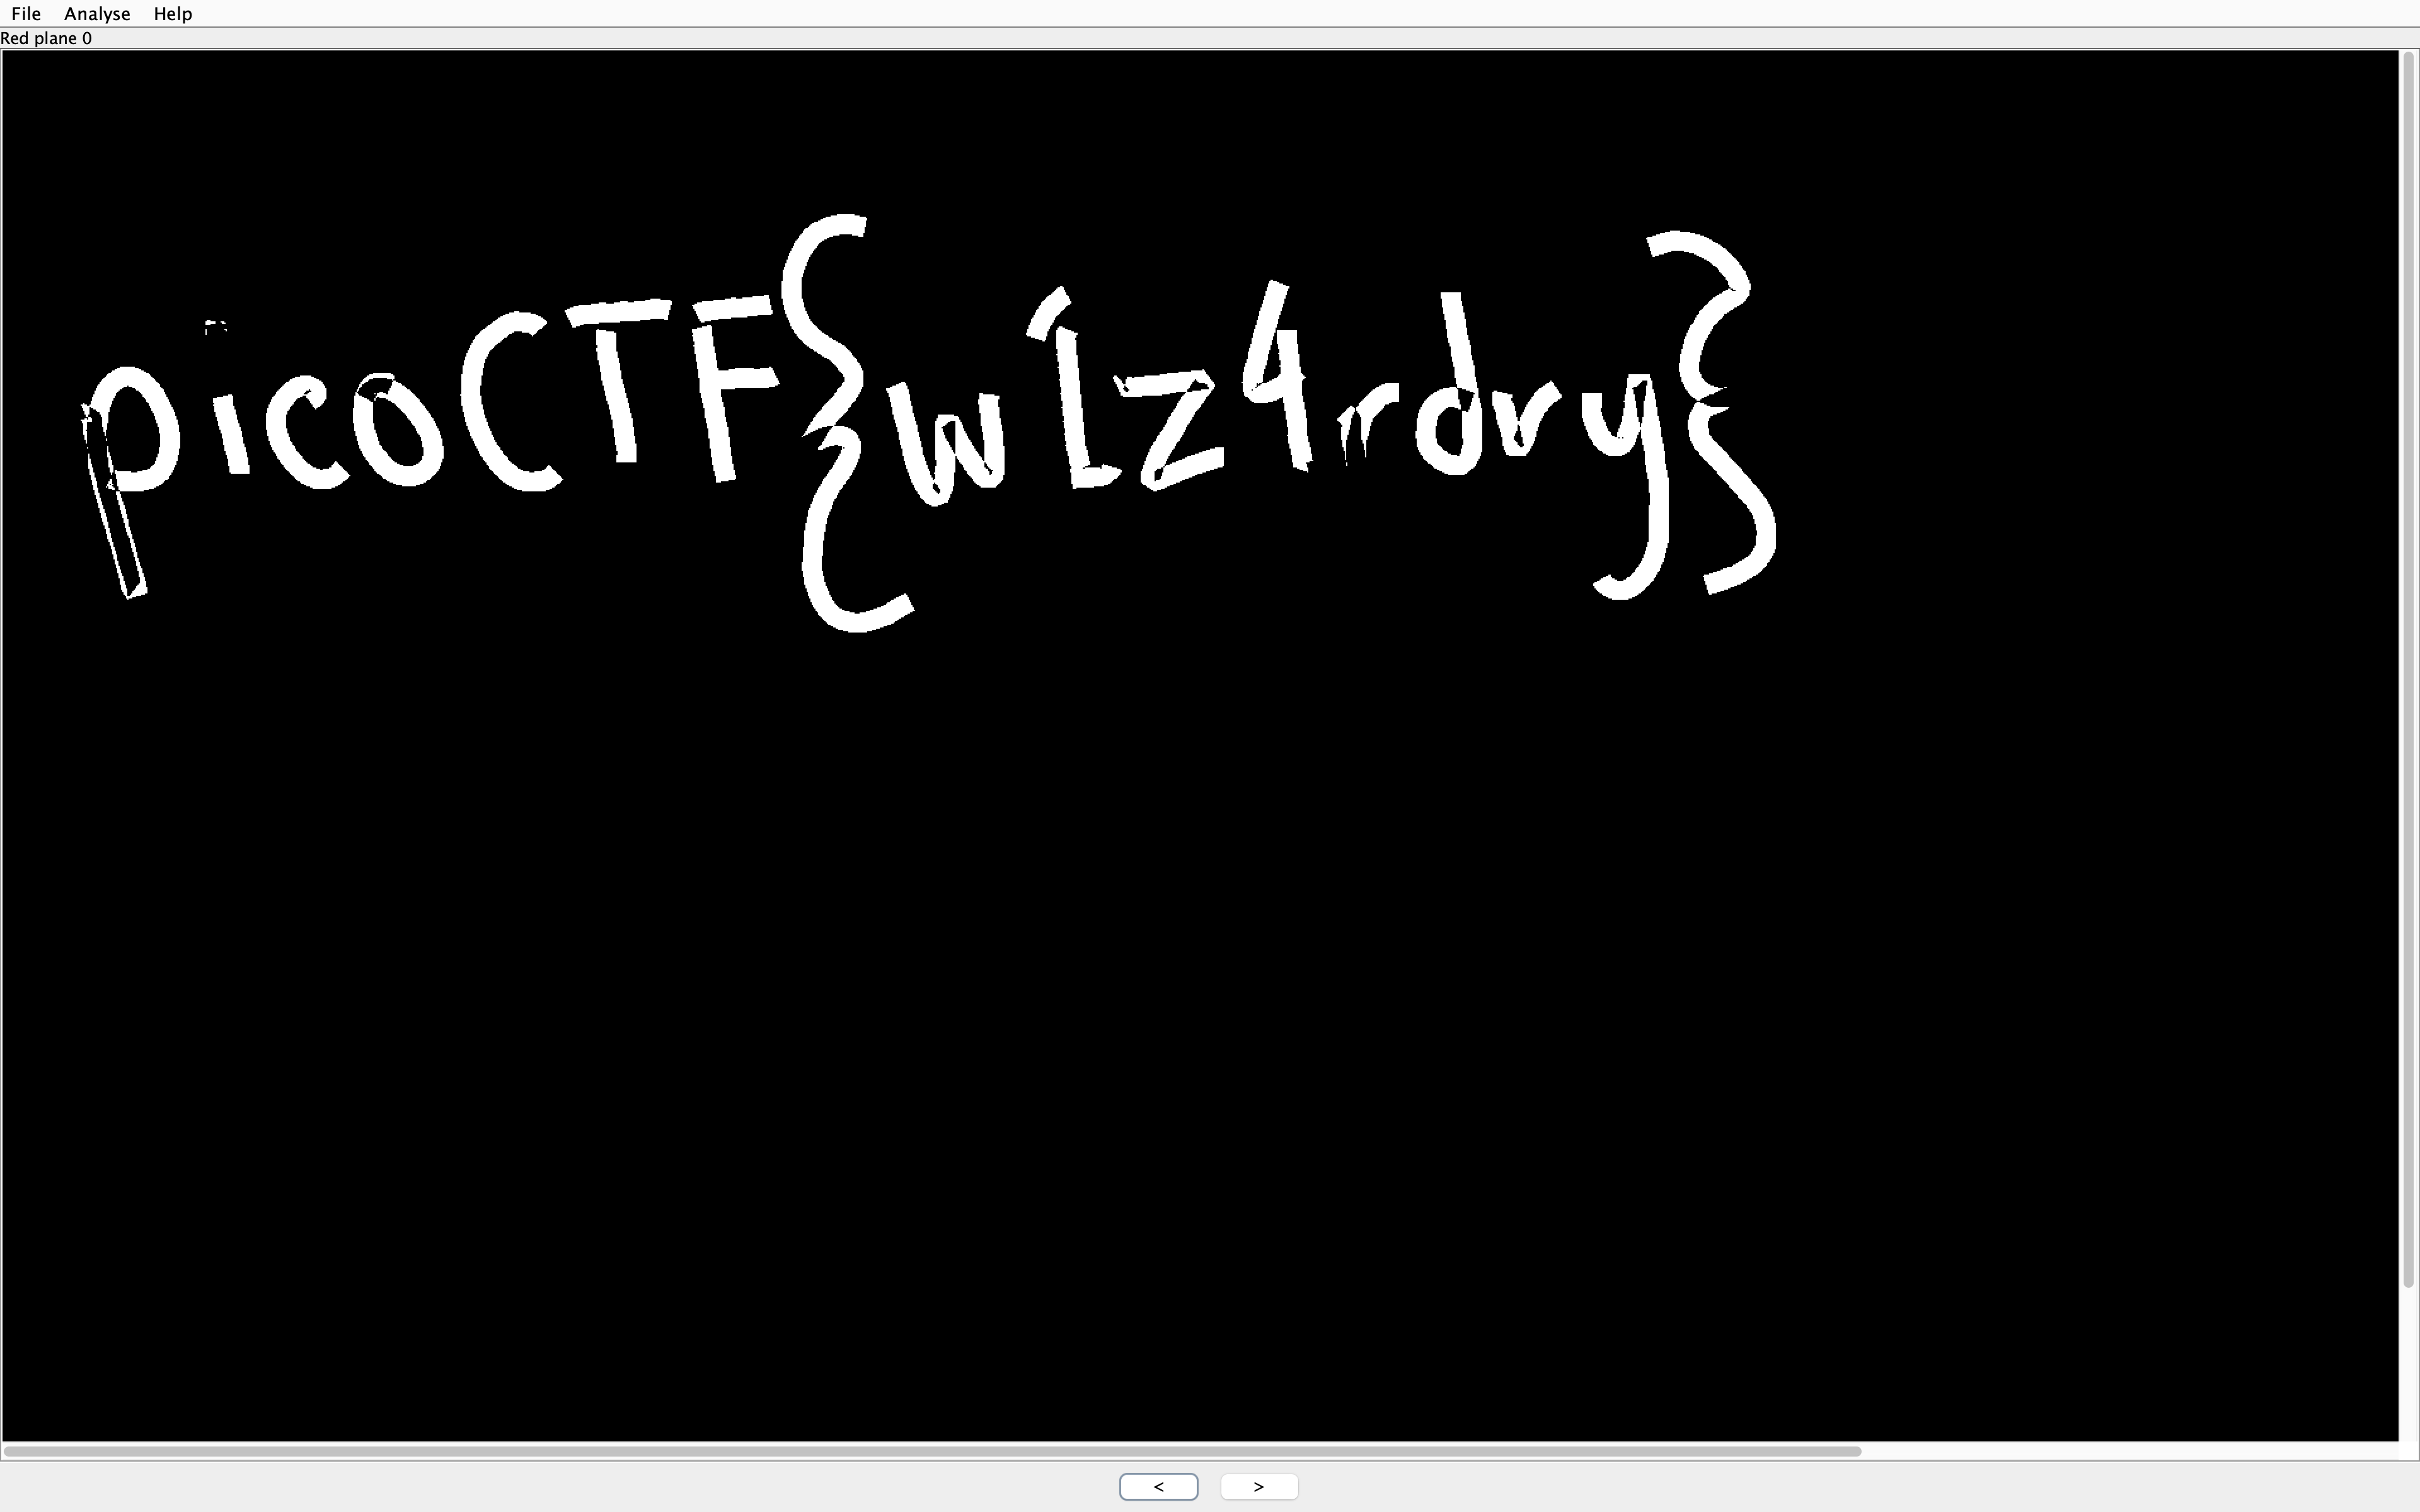 File Analyse Help
Red plane 0
picoCTF{w1z4rdry}
< >